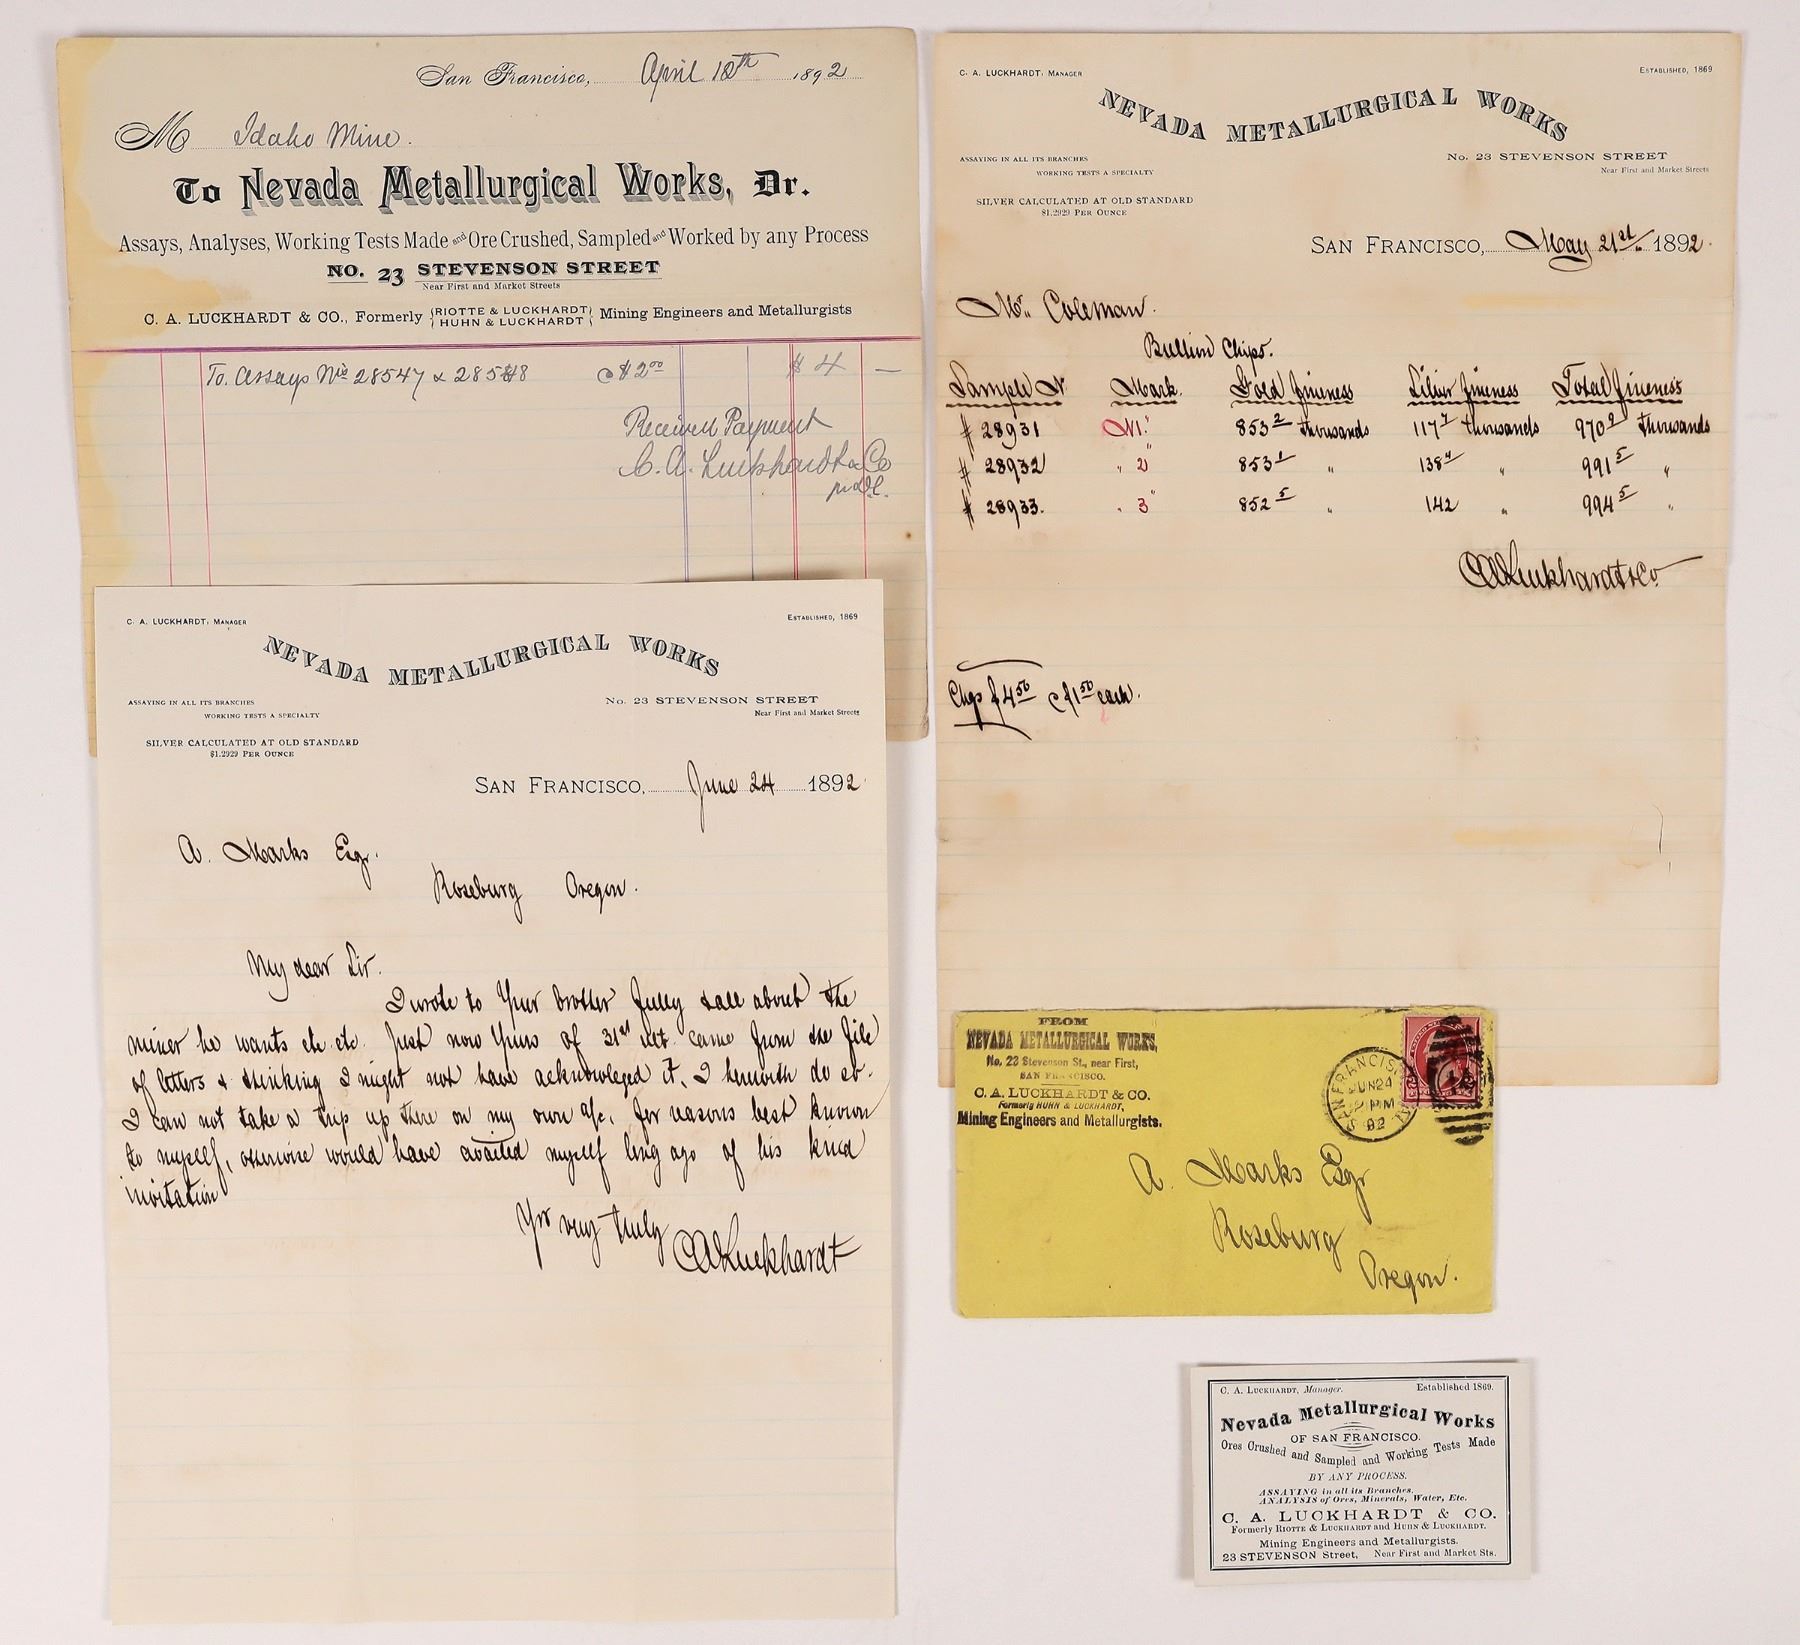 San Francisco, April 18th 1892
M Idaho Mine.
To Nevada Metallurgical Works, Dr.
Assays, Analyses, Working Tests Made and Ore Crushed, Sampled and Worked by any Process
NO. 23 STEVENSON STREET
Near First and Market Streets
C. A. LUCKHARDT & CO., Formerly { RIOTTE & LUCKHARDT } Mining Engineers and Metallurgists
{ HUHN & LUCKHARDT }
To Assays Nos 28547 & 28548 @ $2.00 $4 —
Received Payment
C. A. Luckhardt & Co
C. A. LUCKHARDT, MANAGER ESTABLISHED, 1869
NEVADA METALLURGICAL WORKS
ASSAYING IN ALL ITS BRANCHES No. 23 STEVENSON STREET
WORKING TESTS A SPECIALTY Near First and Market Streets
SILVER CALCULATED AT OLD STANDARD
$1.2929 PER OUNCE
SAN FRANCISCO, June 24 1892
A. Marks Esqr.
Roseburg Oregon.
My dear Sir.
I wrote to Your brother fully all about the
miner he wants etc etc. Just now Yours of 31st ult. came from the file
of letters & thinking I might not have acknowleged it, I herewith do so.
I can not take a trip up there on my own a/c, for reasons best known
to myself, otherwise would have availed myself long ago of his kind
invitation
Yrs very truly
CALuckhardt
C. A. LUCKHARDT, MANAGER ESTABLISHED, 1869
NEVADA METALLURGICAL WORKS
ASSAYING IN ALL ITS BRANCHES No. 23 STEVENSON STREET
WORKING TESTS A SPECIALTY Near First and Market Streets
SILVER CALCULATED AT OLD STANDARD
$1.2929 PER OUNCE
SAN FRANCISCO, May 21st 1892.
Mr. Coleman.
Bullion Chips.
Sample No Mark. Gold fineness Silver fineness Total fineness
# 28931 No 1. 853 2 thousands 117 7 thousands 970 9 thousands
# 28932 " 2 853 1 " 138 4 " 991 5 "
# 28933. " 3 852 5 " 142 " 994 5 "
CALuckhardt & Co
Chgs $4 50 @ $1 50 each.
FROM
NEVADA METALLURGICAL WORKS,
No. 23 Stevenson St., near First,
SAN FRANCISCO.
C. A. LUCKHARDT & CO.
Formerly HUHN & LUCKHARDT,
Mining Engineers and Metallurgists.
SAN FRANCISCO, CAL
JUN 24
2 PM
92
A. Marks Esqr
Roseburg
Oregon.
C. A. LUCKHARDT, Manager. Established 1869.
Nevada Metallurgical Works
OF SAN FRANCISCO.
Ores Crushed and Sampled and Working Tests Made
BY ANY PROCESS.
ASSAYING in all its Branches.
ANALYSIS of Ores, Minerals, Water, Etc.
C. A. LUCKHARDT & CO.
Formerly RIOTTE & LUCKHARDT and HUHN & LUCKHARDT.
Mining Engineers and Metallurgists.
23 STEVENSON Street, Near First and Market Sts.